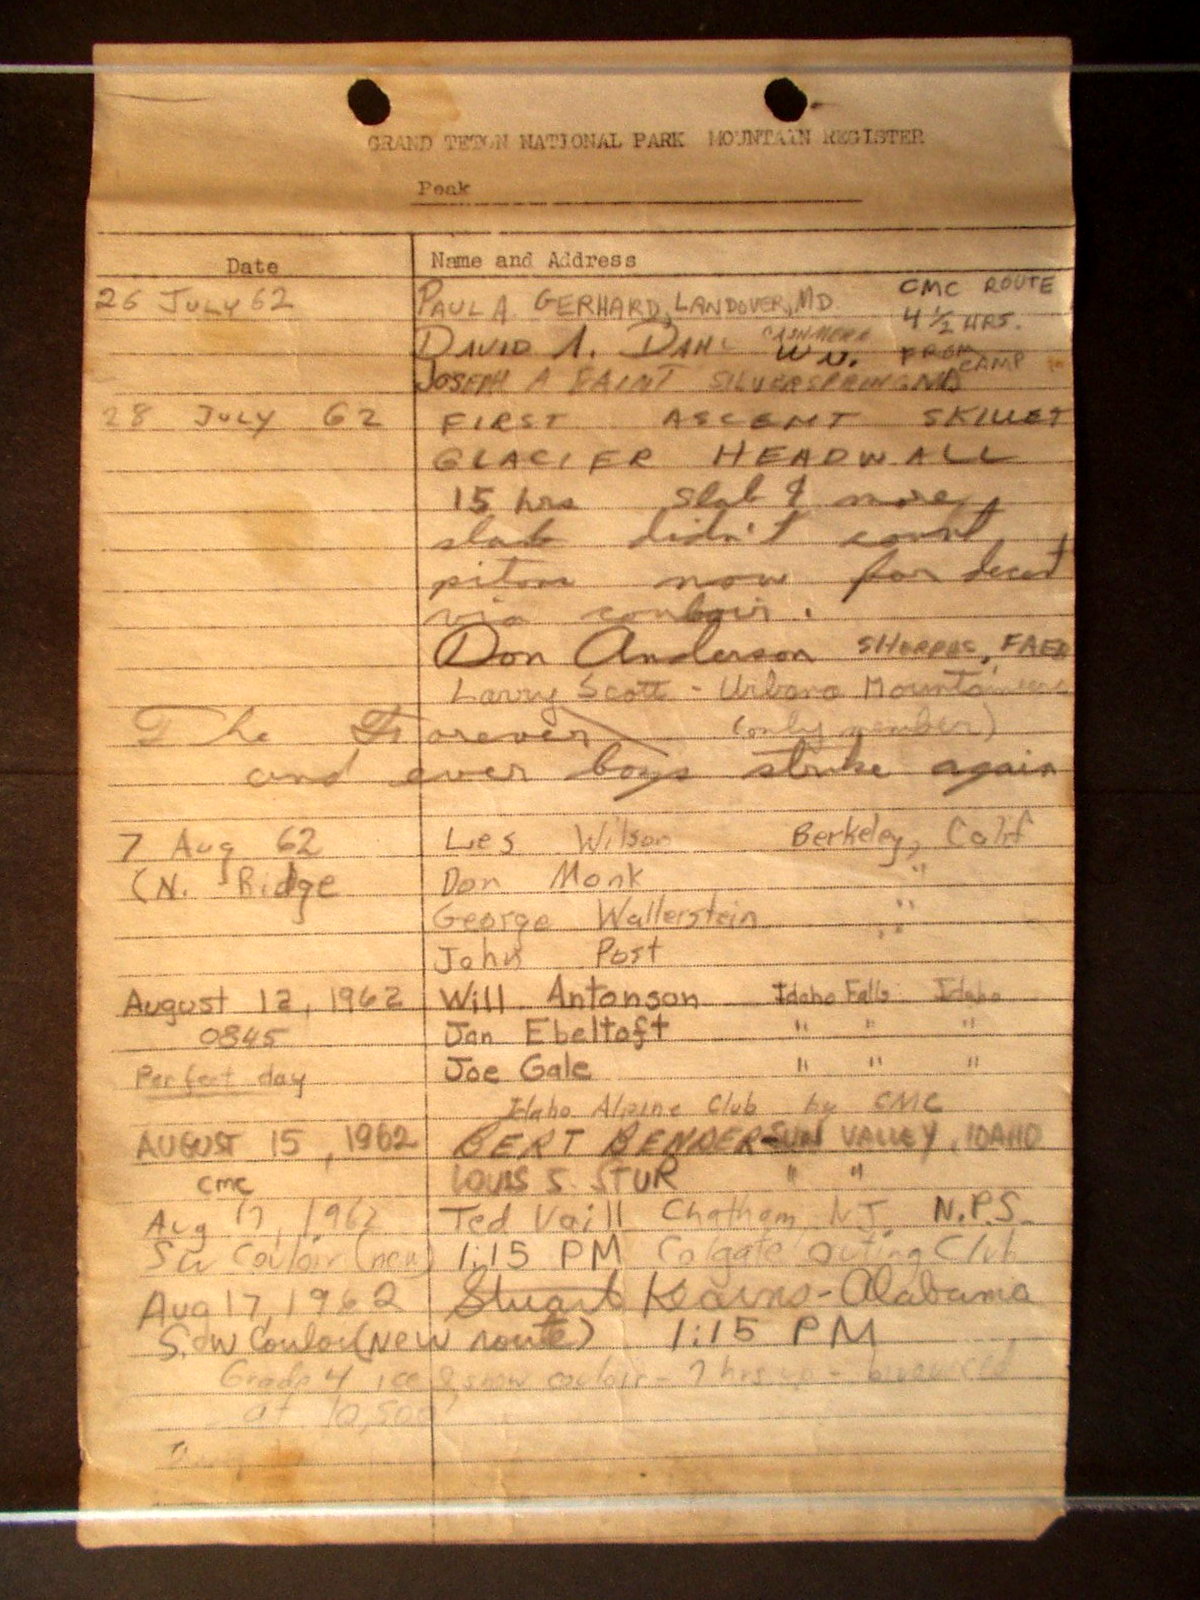 GRAND TETON NATIONAL PARK MOUNTAIN REGISTER
Peak
Date Name and Address
26 JULY 62 PAUL A. GERHARD, LANDOVER, MD. CMC ROUTE
4 ½ HRS.
DAVID A. DAHL CASHMERE WN. FROM
JOSEPH A FAINT SILVER SPRING MD CAMP
28 JULY 62 FIRST ASCENT SKILLET
GLACIER HEADWALL
15 hrs slab & more
slab didn't count
pitons now for decent
via couloir.
Don Anderson SHERPAS,
Larry Scott - Urbana Mountaineers
The Forever (only member)
and ever boys strike again
7 Aug 62 Les Wilson Berkeley, Calif
(N. Ridge Don Monk "
George Wallerstein "
John Post "
August 12, 1962 Will Antonson Idaho Falls Idaho
0845 Jan Ebeltoft " " "
Perfect day Joe Gale " " "
Idaho Alpine Club by CMC
AUGUST 15, 1962 BERT BENDER-SUN VALLEY, IDAHO
CMC LOUIS S. STUR " "
Aug 17, 1962 Ted Vaill Chatham N.J. N.P.S.
SW Couloir (new) 1:15 PM Colgate Outing Club
Aug 17, 1962 Stuart Kearns-Alabama
S.W Couloir (New route) 1:15 PM
Grade 4 ice & snow couloir - 7 hrs up - bivouaced
at 10,500'